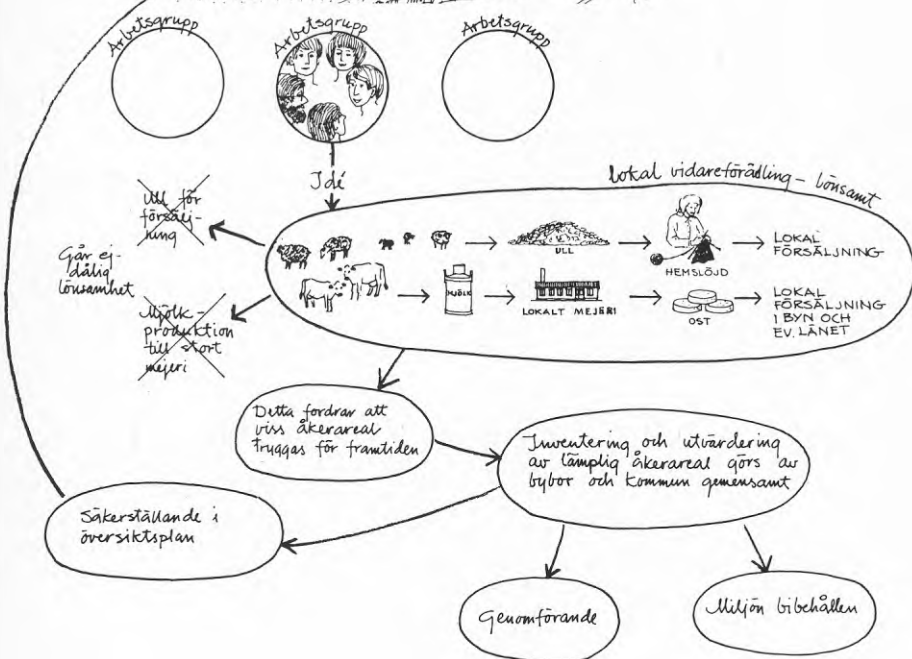 Arbetsgrupp
Arbetsgrupp
Arbetsgrupp
Idé
Lokal vidareförädling - lönsamt
Ull för
försälj-
ning
Går ej-
dålig
lönsamhet
Mjölk-
produktion
till stort
mejeri
ULL
HEMSLÖJD
LOKAL
FÖRSÄLJNING
MJÖLK
LOKALT MEJERI
OST
LOKAL
FÖRSÄLJNING
I BYN OCH
EV. LÄNET
Detta fordrar att
viss åkerareal
tryggas för framtiden
Inventering och utvärdering
av lämplig åkerareal görs av
bybor och kommun gemensamt
Säkerställande i
översiktsplan
Genomförande
Miljön bibehållen